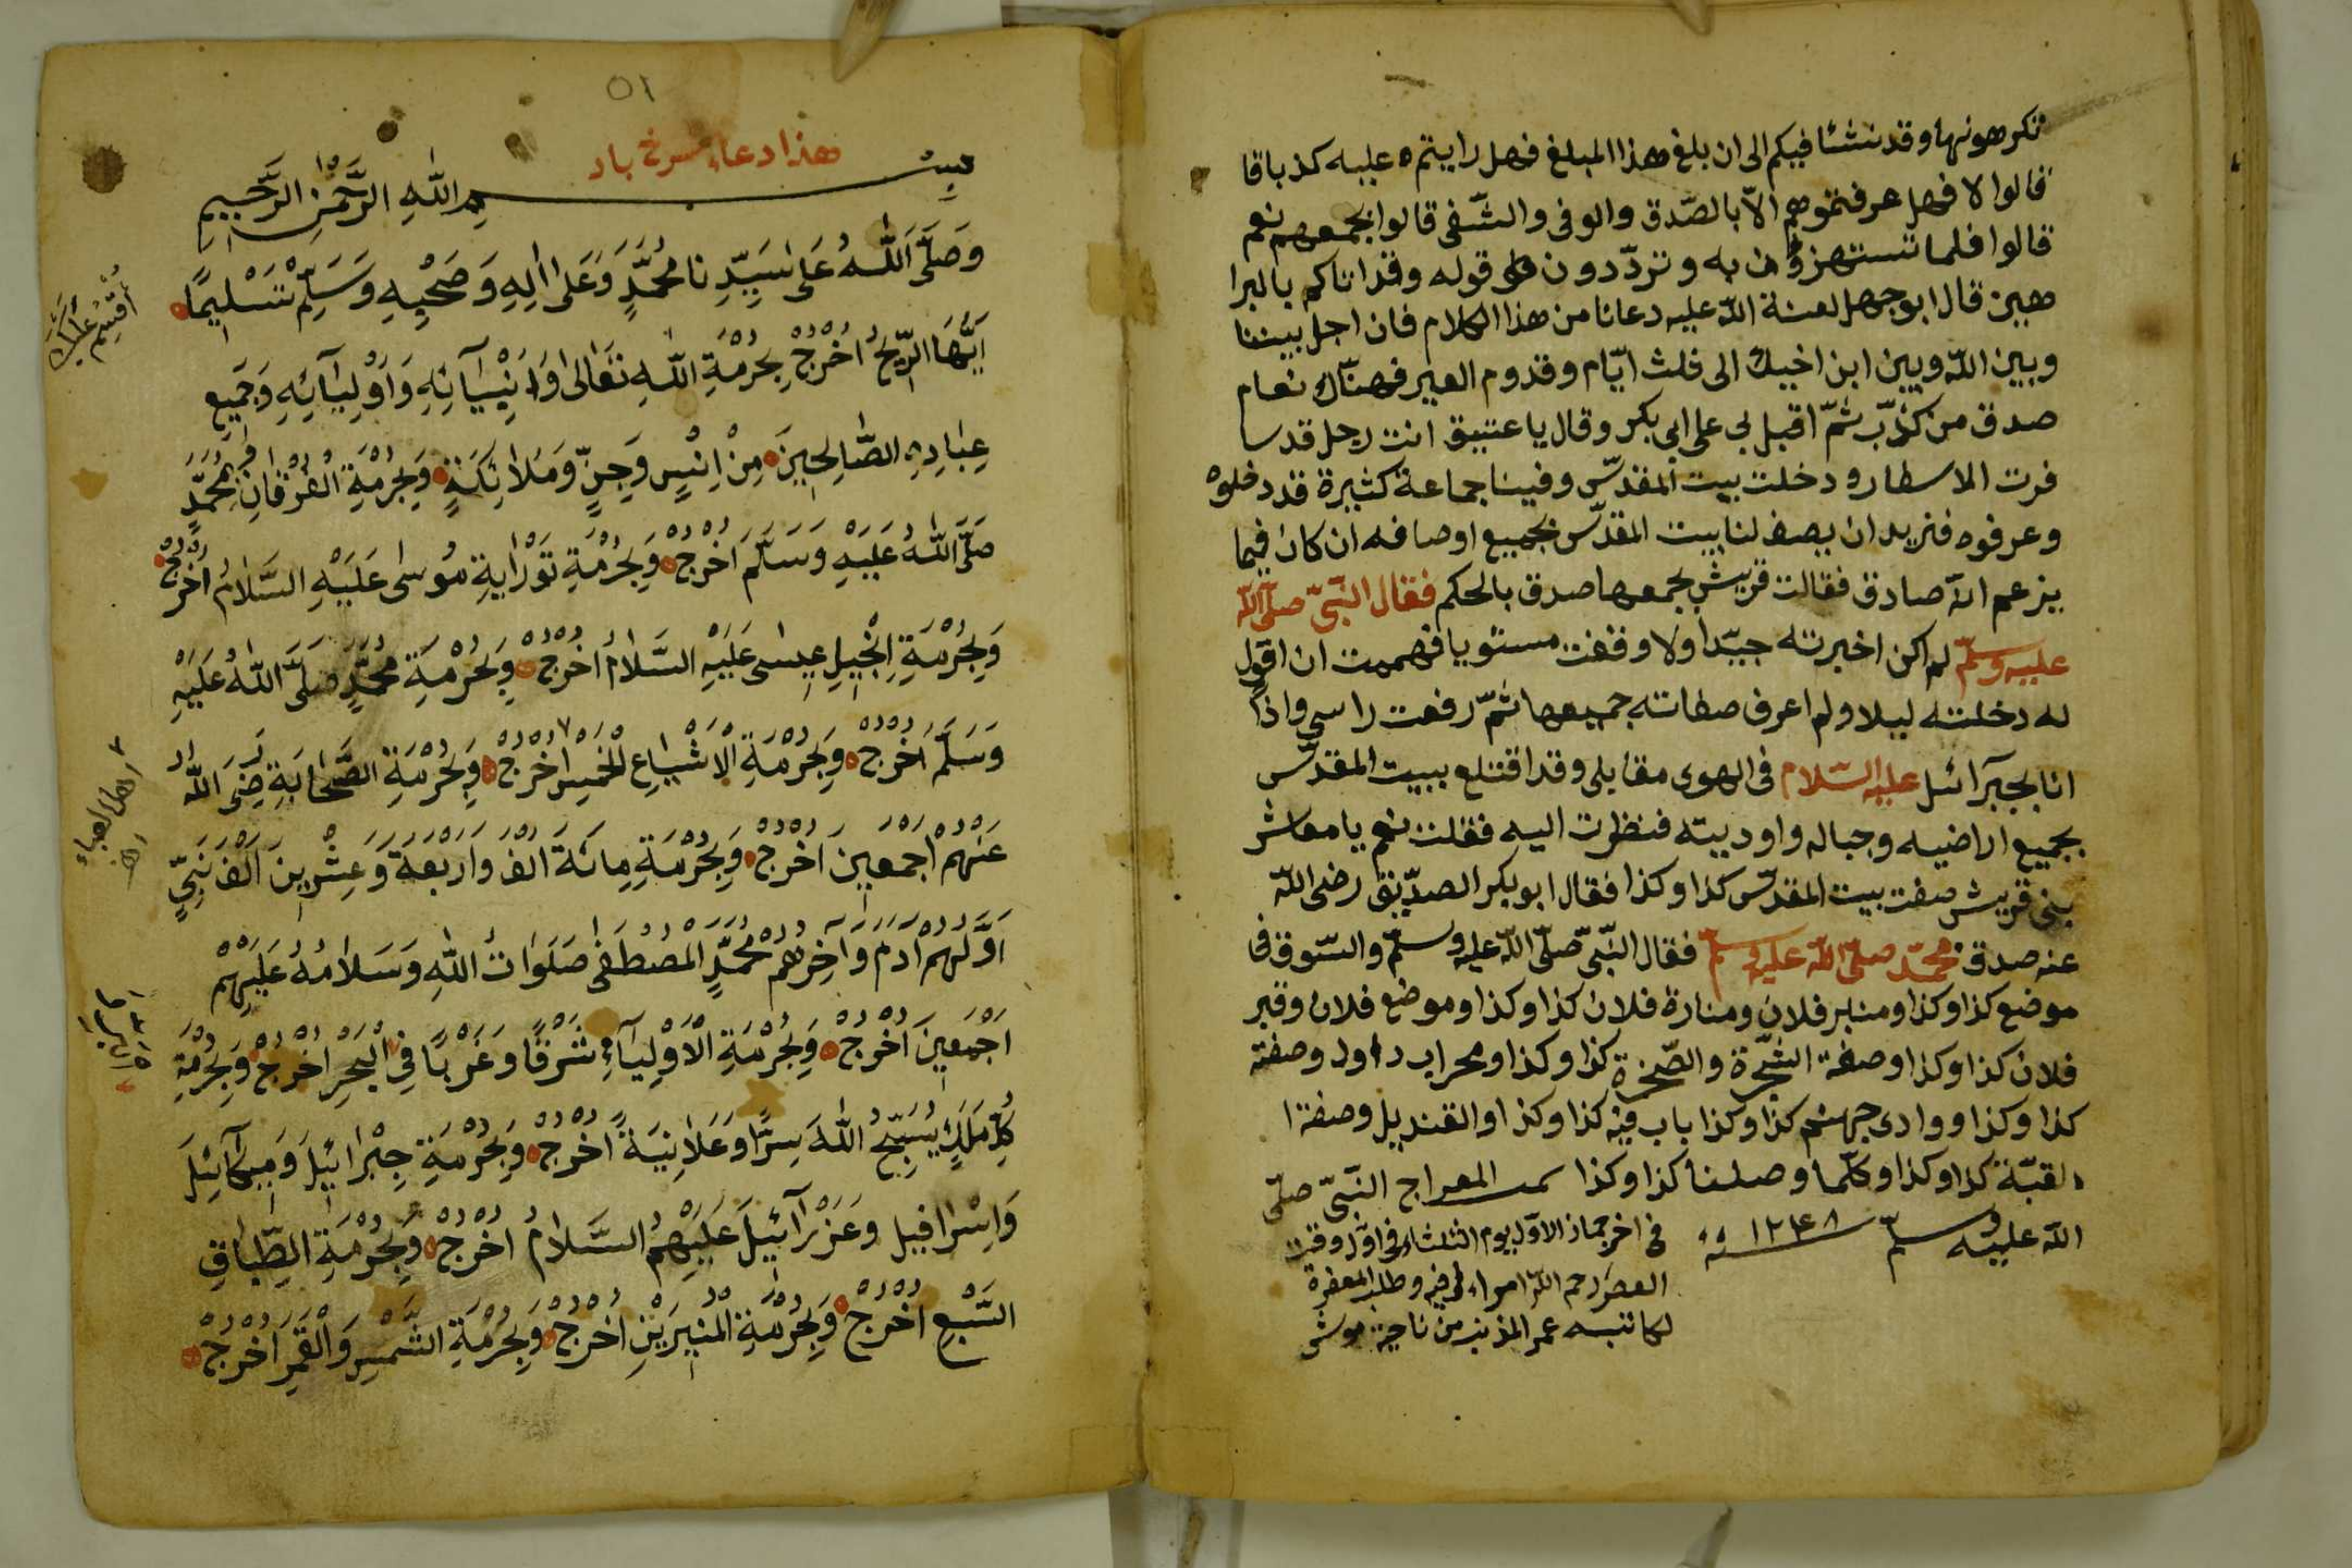 تكرهونها وقد نشئا فيكم الى ان بلغ هذا المبلغ فهل رايتم عليه كذبا قا
قالوا لا فهل عرفتموهم الّا بالصّدق والوفى والشّفى قالوا بجمعهم نعم
قالوا فلما تستهزؤن به وتردّدون قوله وقد اتاكم بالبرا
هين قال ابوجهل لعنة اللّه عليه دعانا من هذا الكلام فان اجل بيننا
وبين اللّه وبين ابن اخيك الى ثلث ايّام وقدوم العير فهناك نعام
صدق من كذّب ثمّ اقبل بى على ابى بكر وقال يا عتيق انت رجل قد سا
فرت الاسطار ودخلت بيت المقدّس وفينا جماعة كثيرة قد دخلوه
وعرفوه فنريد ان يصف لنا بيت المقدّس بجميع اوصافه ان كان فيما
يزعم انّه صادق فقالت قريش بجمعها صدق بالحكم فقال النّبىّ صلّى اللّه
عليه وسلّم لم اكن اخبرته جيّدا ولا وقفت مستويا فهممت ان اقول
له دخلته ليلا ولم اعرف صفاته جميعها ثمّ رفعت راسى واذا
انا بجبرآئل عليه السّلام فى الهوى مقابلى وقد اقتلع ببيت المقدّس
بجميع اراضيه وجباله واوديته فنظرت اليه فقلت نعم يا معاشر
بنى قريش صفت بيت المقدّس كذا وكذا فقال ابوبكر الصدّيق رضى اللّه
عنه صدق محمّد صلّى اللّه عليه وسلّم فقال النّبىّ صلّى اللّه عليه وسلّم والسّوق فى
موضع كذا وكذا ومنبر فلان ومنارة فلان كذا وكذا وموضع فلان وقبر
فلان كذا وكذا وصفة الشّجرة والصّخرة كذا وكذا ومحراب داود وصفة
كذا وكذا ووادى جهنم كذا وكذا باب فيه كذا وكذا والقنديل وصفة ا
القبّة كذا وكذا وكلّما وصلنا كذا وكذا تمت المعراج النّبىّ صلّى
اللّه عليه وسلّم سنة ١٢٤٨
فى اخر جماذ الاوّل يوم الثلثاء فى اوّل وقت
العصر رحم اللّه امراء قرا فيه وطلب المغفرة
لكاتبه عمر المذنب من ناحية موش
٥١
هذا دعاء سرخ باد
بِسْمِ اللّٰهِ الرَّحْمٰنِ الرَّحِيمِ
وَصَلَّى اللّٰهُ عَلٰى سَيِّدِنَا مُحَمَّدٍ وَعَلٰى اٰلِهِ وَصَحْبِهِ وَسَلِّمْ تَسْلِيمًا
اُقْسِمُ عَلَيْكَ
اَيُّهَا الرِّيحُ اُخْرُجْ بِحُرْمَةِ اللّٰهِ تَعَالٰى وَاَنْبِيَآئِهِ وَاَوْلِيَآئِهِ وَجَمِيعِ
عِبَادِهِ الصَّالِحِينَ مِنْ اِنْسٍ وَجِنٍّ وَمَلَائِكَةٍ وَبِحُرْمَةِ الْفُرْقَانِ مُحَمَّدٍ
صَلَّى اللّٰهُ عَلَيْهِ وَسَلَّمَ اُخْرُجْ وَبِحُرْمَةِ تَوْرٰايةِ مُوسٰى عَلَيْهِ السَّلَامُ اُخْرُجْ
وَبِحُرْمَةِ اِنْجِيلِ عِيسٰى عَلَيْهِ السَّلَامُ اُخْرُجْ وَبِحُرْمَةِ مُحَمَّدٍ صَلَّى اللّٰهُ عَلَيْهِ
وَسَلَّمَ اُخْرُجْ وَبِحُرْمَةِ الْاَشْيَاعِ الْخَمْسِ اُخْرُجْ وَبِحُرْمَةِ الصَّحَابَةِ رَضِىَ اللّٰهُ
اهل العباء
عَنْهُمْ اَجْمَعِينَ اُخْرُجْ وَبِحُرْمَةِ مِائَةَ اَلْفَ وَاَرْبَعَةَ وَعِشْرِينَ اَلْفَ نَبِىٍّ
اَوَّلُهُمْ اٰدَمُ وَاٰخِرُهُمْ مُحَمَّدٍ الْمُصْطَفٰى صَلَوَاتُ اللّٰهِ وَسَلَامُهُ عَلَيْهِمْ
اَجْمَعِينَ اُخْرُجْ وَبِحُرْمَةِ الْاَوْلِيَآءِ شَرْقًا وَغَرْبًا فِى الْبَحْرِ اُخْرُجْ وَبِحُرْمَةِ
كُلِّ مَلَكٍ يُسَبِّحُ اللّٰهَ سِرًّا وَعَلَانِيَةً اُخْرُجْ وَبِحُرْمَةِ جِبْرَائِيلَ وَمِيكَآئِلَ
وَاِسْرَافِيل وَعَزْرَآئِيلَ عَلَيْهِمُ السَّلَامُ اُخْرُجْ وَبِحُرْمَةِ الطِّبَاقِ
السَّبْعِ اُخْرُجْ وَبِحُرْمَةِ الْمُنِيرَيْنِ اُخْرُجْ وَبِحُرْمَةِ الشَّمْسِ وَالْقَمَرِ اُخْرُجْ